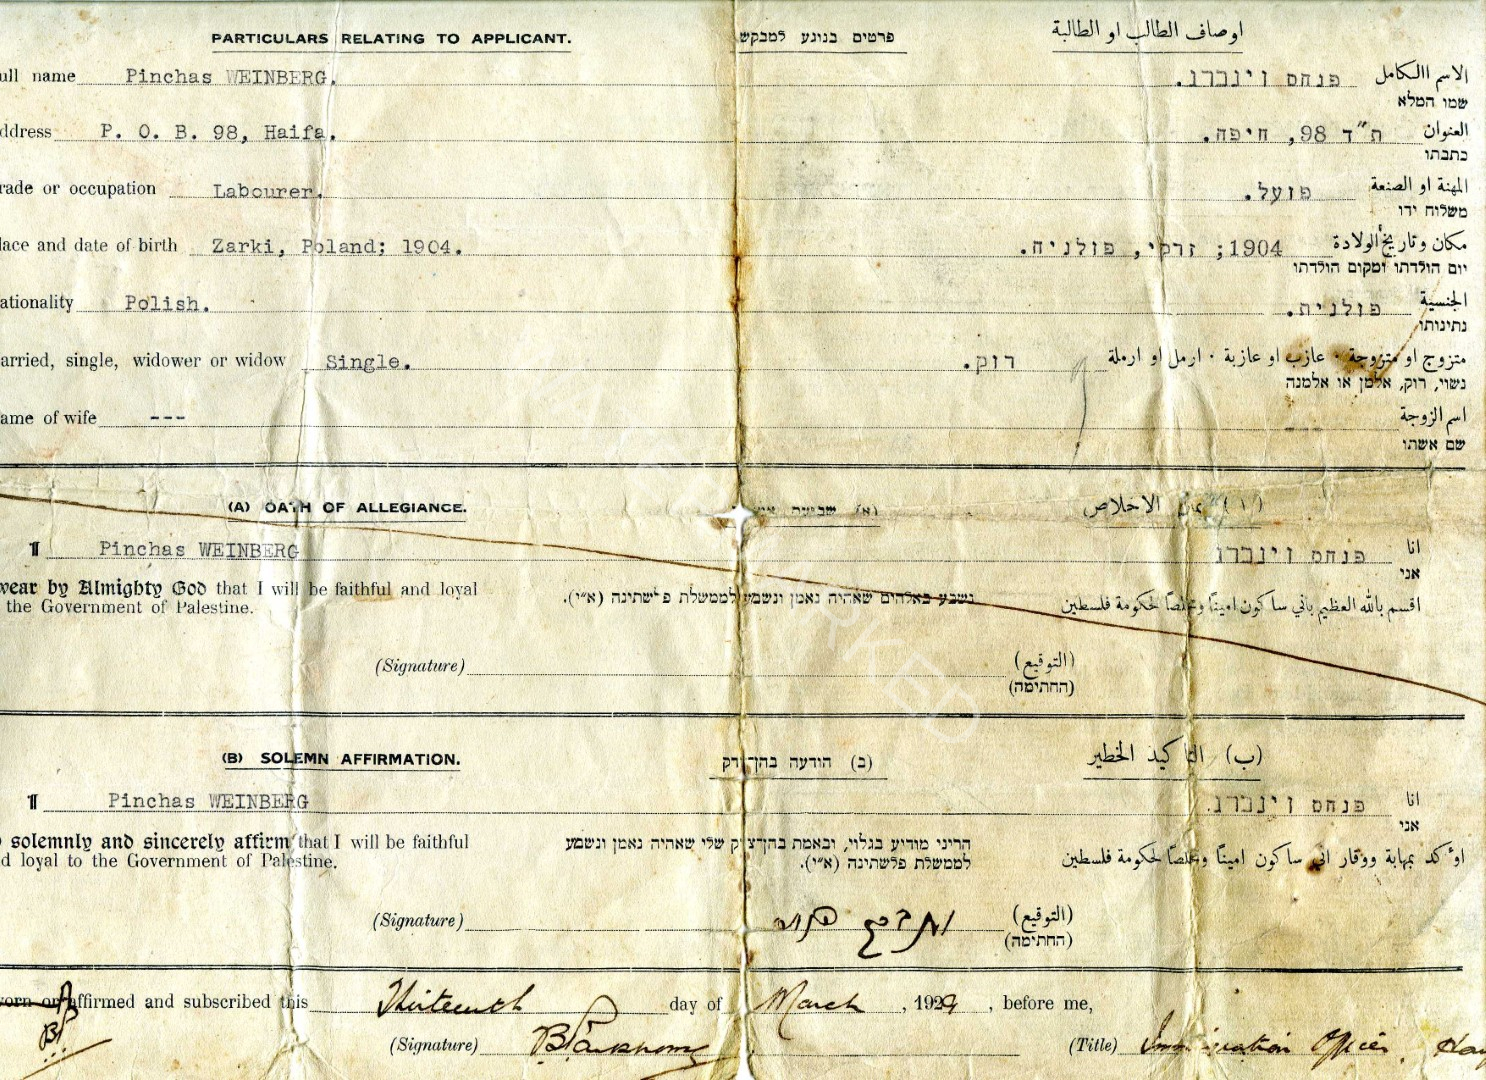 PARTICULARS RELATING TO APPLICANT. פרטים בנוגע למבקש اوصاف الطالب او الطالبة
ull name Pinchas WEINBERG. פנחס וינברג. الاسم الكامل
שמו המלא
ddress P. O. B. 98, Haifa. ת"ד 98, חיפה. العنوان
כתבתו
rade or occupation Labourer. פועל. المهنة او الصنعة
משלוח ידו
lace and date of birth Zarki, Poland; 1904. 1904; זרקי, פולניה. مكان وتاريخ الولادة
יום הולדתו ומקום הולדתו
ationality Polish. פולנית. الجنسية
נתינותו
arried, single, widower or widow Single. רוק. متزوج او متزوجة · عازب او عازبة · ارمل او ارملة
נשוי, רוק, אלמן או אלמנה
ame of wife --- --- اسم الزوجة
שם אשתו
(A) OATH OF ALLEGIANCE. (א) שבועת (١) يمين الاخلاص
I Pinchas WEINBERG פנחס וינברג انا
אני
wear by Almighty God that I will be faithful and loyal נשבע באלהים שאהיה נאמן ונשמע לממשלת פלשתינה (א״י). اقسم بالله العظيم باني ساكون امينًا ومخلصًا لحكومة فلسطين
the Government of Palestine.
(Signature) (التوقيع)
(החתימה)
(B) SOLEMN AFFIRMATION. (ב) הודעה בהן־צדק (ب) التاكيد الخطير
I Pinchas WEINBERG פנחס וינברג. انا
אני
o solemnly and sincerely affirm that I will be faithful הריני מודיע בגלוי, ובאמת בהן־צדק שלי שאהיה נאמן ונשמע اؤكد بمهابة ووقار اني ساكون امينًا ومخلصًا لحكومة فلسطين
d loyal to the Government of Palestine. לממשלת פלשתינה (א״י).
(Signature) (التوقيع)
(החתימה)
worn or affirmed and subscribed this Thirteenth day of March, 1929, before me,
(Signature) (Title) Immigration Officer,